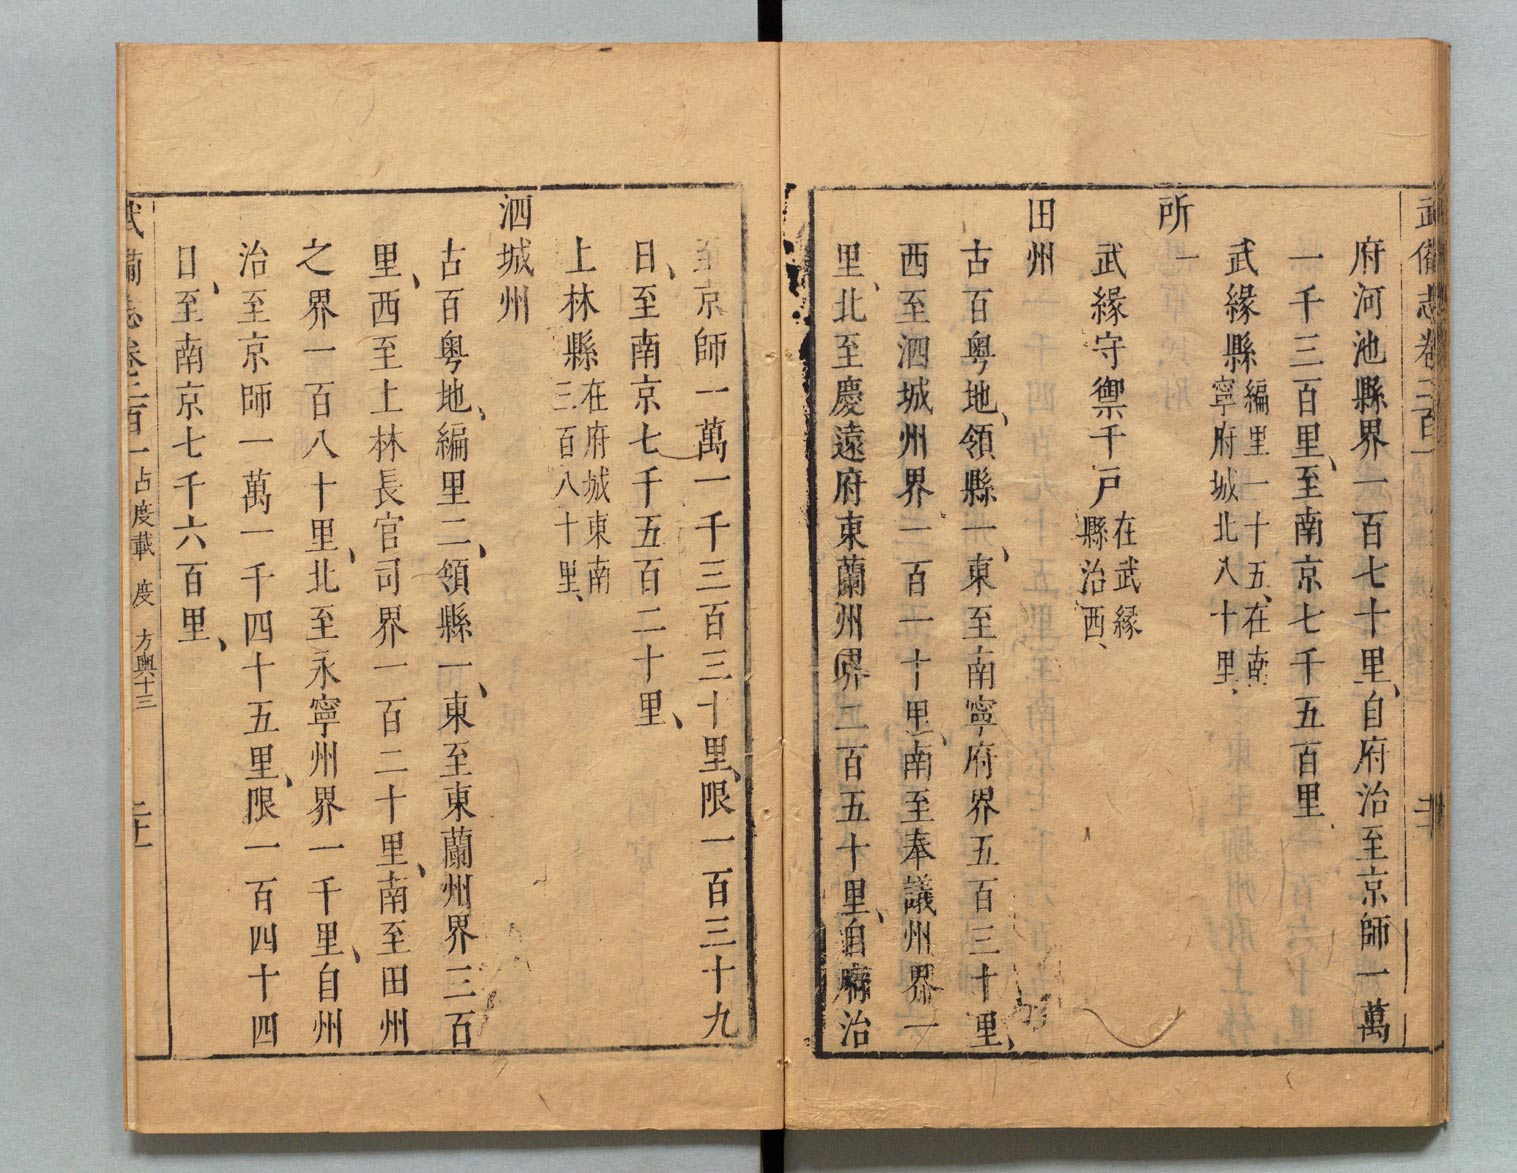 武備志卷二百一
府河池縣界一百七十里、自府治至京師一萬
一千三百里、至南京七千五百里、
武緣縣編里一十五、在南寧府城北八十里、
所一
武緣守禦千戶在武緣縣治西、
田州
古百粵地、領縣一、東至南寧府界五百三十里、
西至泗城州界一百一十里、南至奉議州界一
里、北至慶遠府東蘭州界二百五十里、自府治
至京師一萬一千三百三十里、限一百三十九
日、至南京七千五百二十里、
上林縣在府城東南三百八十里、
泗城州
古百粵地、編里二、領縣一、東至東蘭州界三百
里、西至上林長官司界一百二十里、南至田州
之界一百八十里、北至永寧州界一千里、自州
治至京師一萬一千四十五里、限一百四十四
日、至南京七千六百里、
武備志卷二百一 占度載 度 方輿十三 二十一